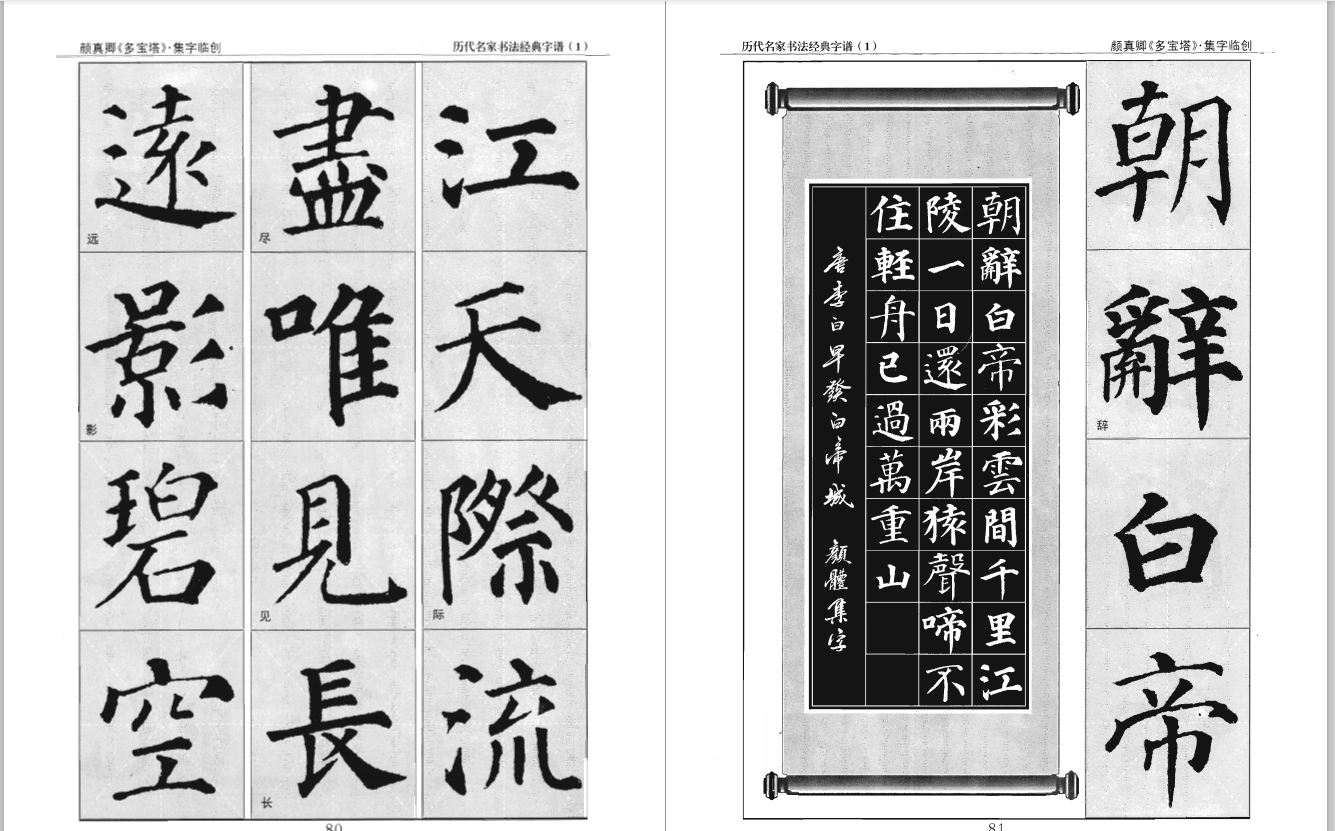 颜真卿《多宝塔》·集字临创
历代名家书法经典字谱（1）
遠影碧空
远
影
盡唯見長
尽
见
长
江天際流
际
80
历代名家书法经典字谱（1）
颜真卿《多宝塔》·集字临创
朝辭白帝
辞
朝辭白帝彩雲間千里江
陵一日還兩岸猿聲啼不
住輕舟已過萬重山
唐李白早發白帝城 顏體集字
81